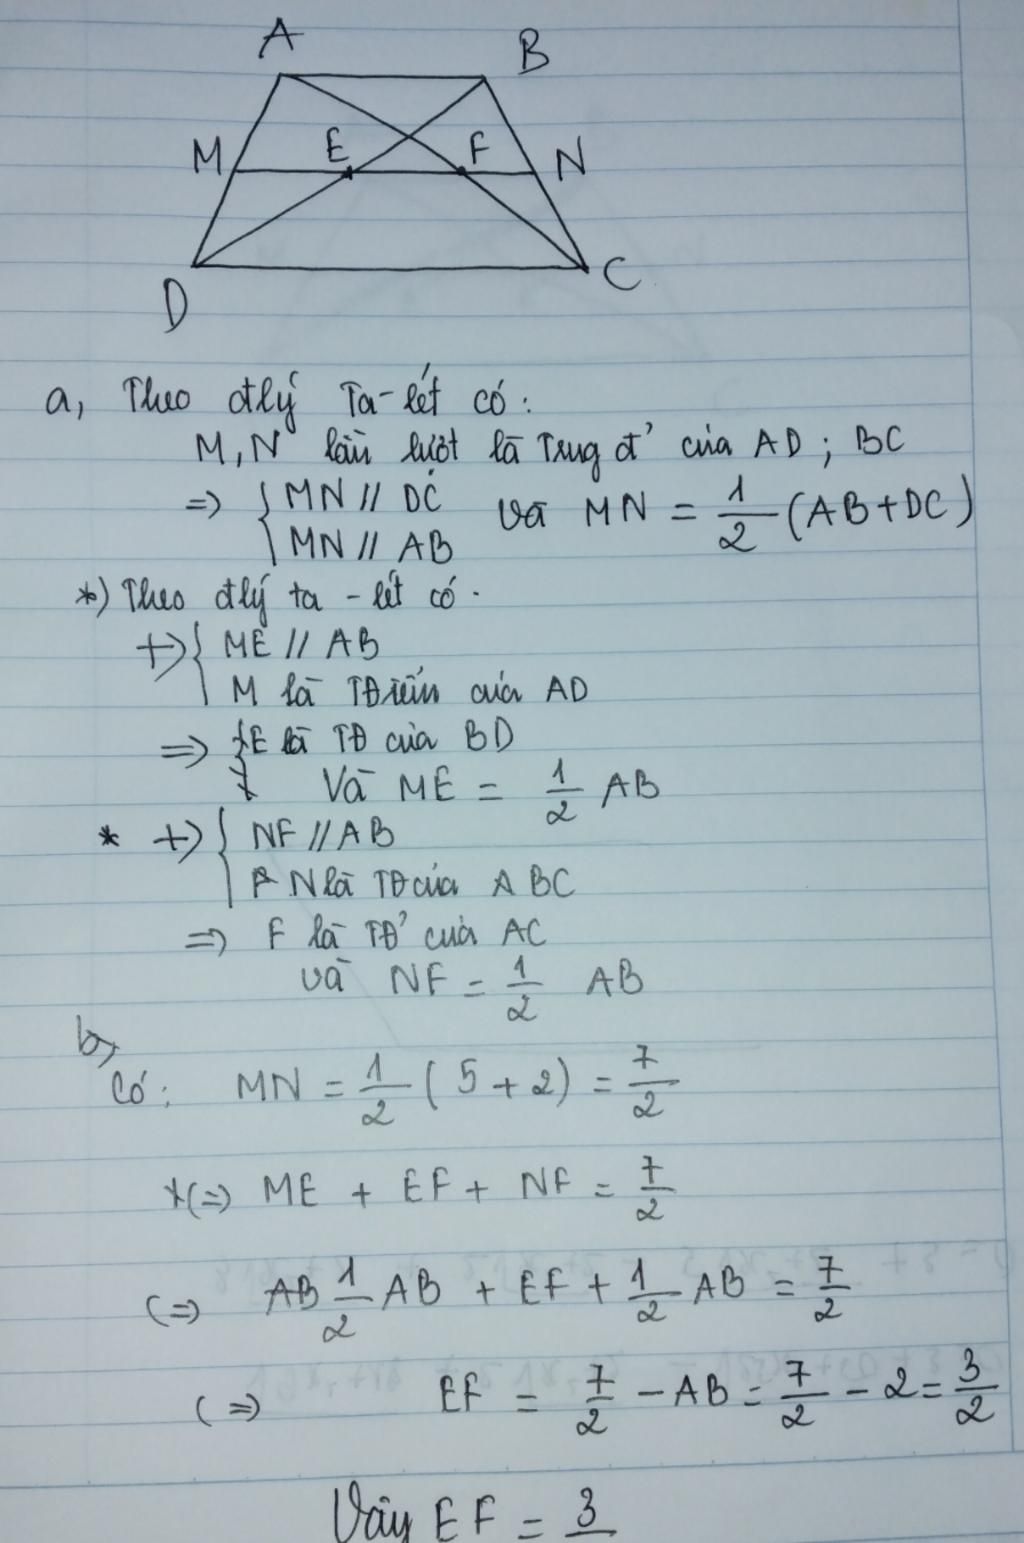 A B
M E F N
D C
a, Theo đlý Ta-lét có:
M, N lần lượt là Trug đ' của AD; BC
=> { MN // DC và MN = 1/2 (AB + DC)
MN // AB
*) Theo đlý ta-lét có.
+) { ME // AB
M là TĐiểm của AD
=> { E là TĐ của BD
Và ME = 1/2 AB
* +) { NF // AB
N là TĐ của BC
=> F là TĐ' của AC
và NF = 1/2 AB
b,
Có: MN = 1/2 (5 + 2) = 7/2
(=) ME + EF + NF = 7/2
(=) 1/2 AB + EF + 1/2 AB = 7/2
(=) EF = 7/2 - AB = 7/2 - 2 = 3/2
Vậy EF = 3